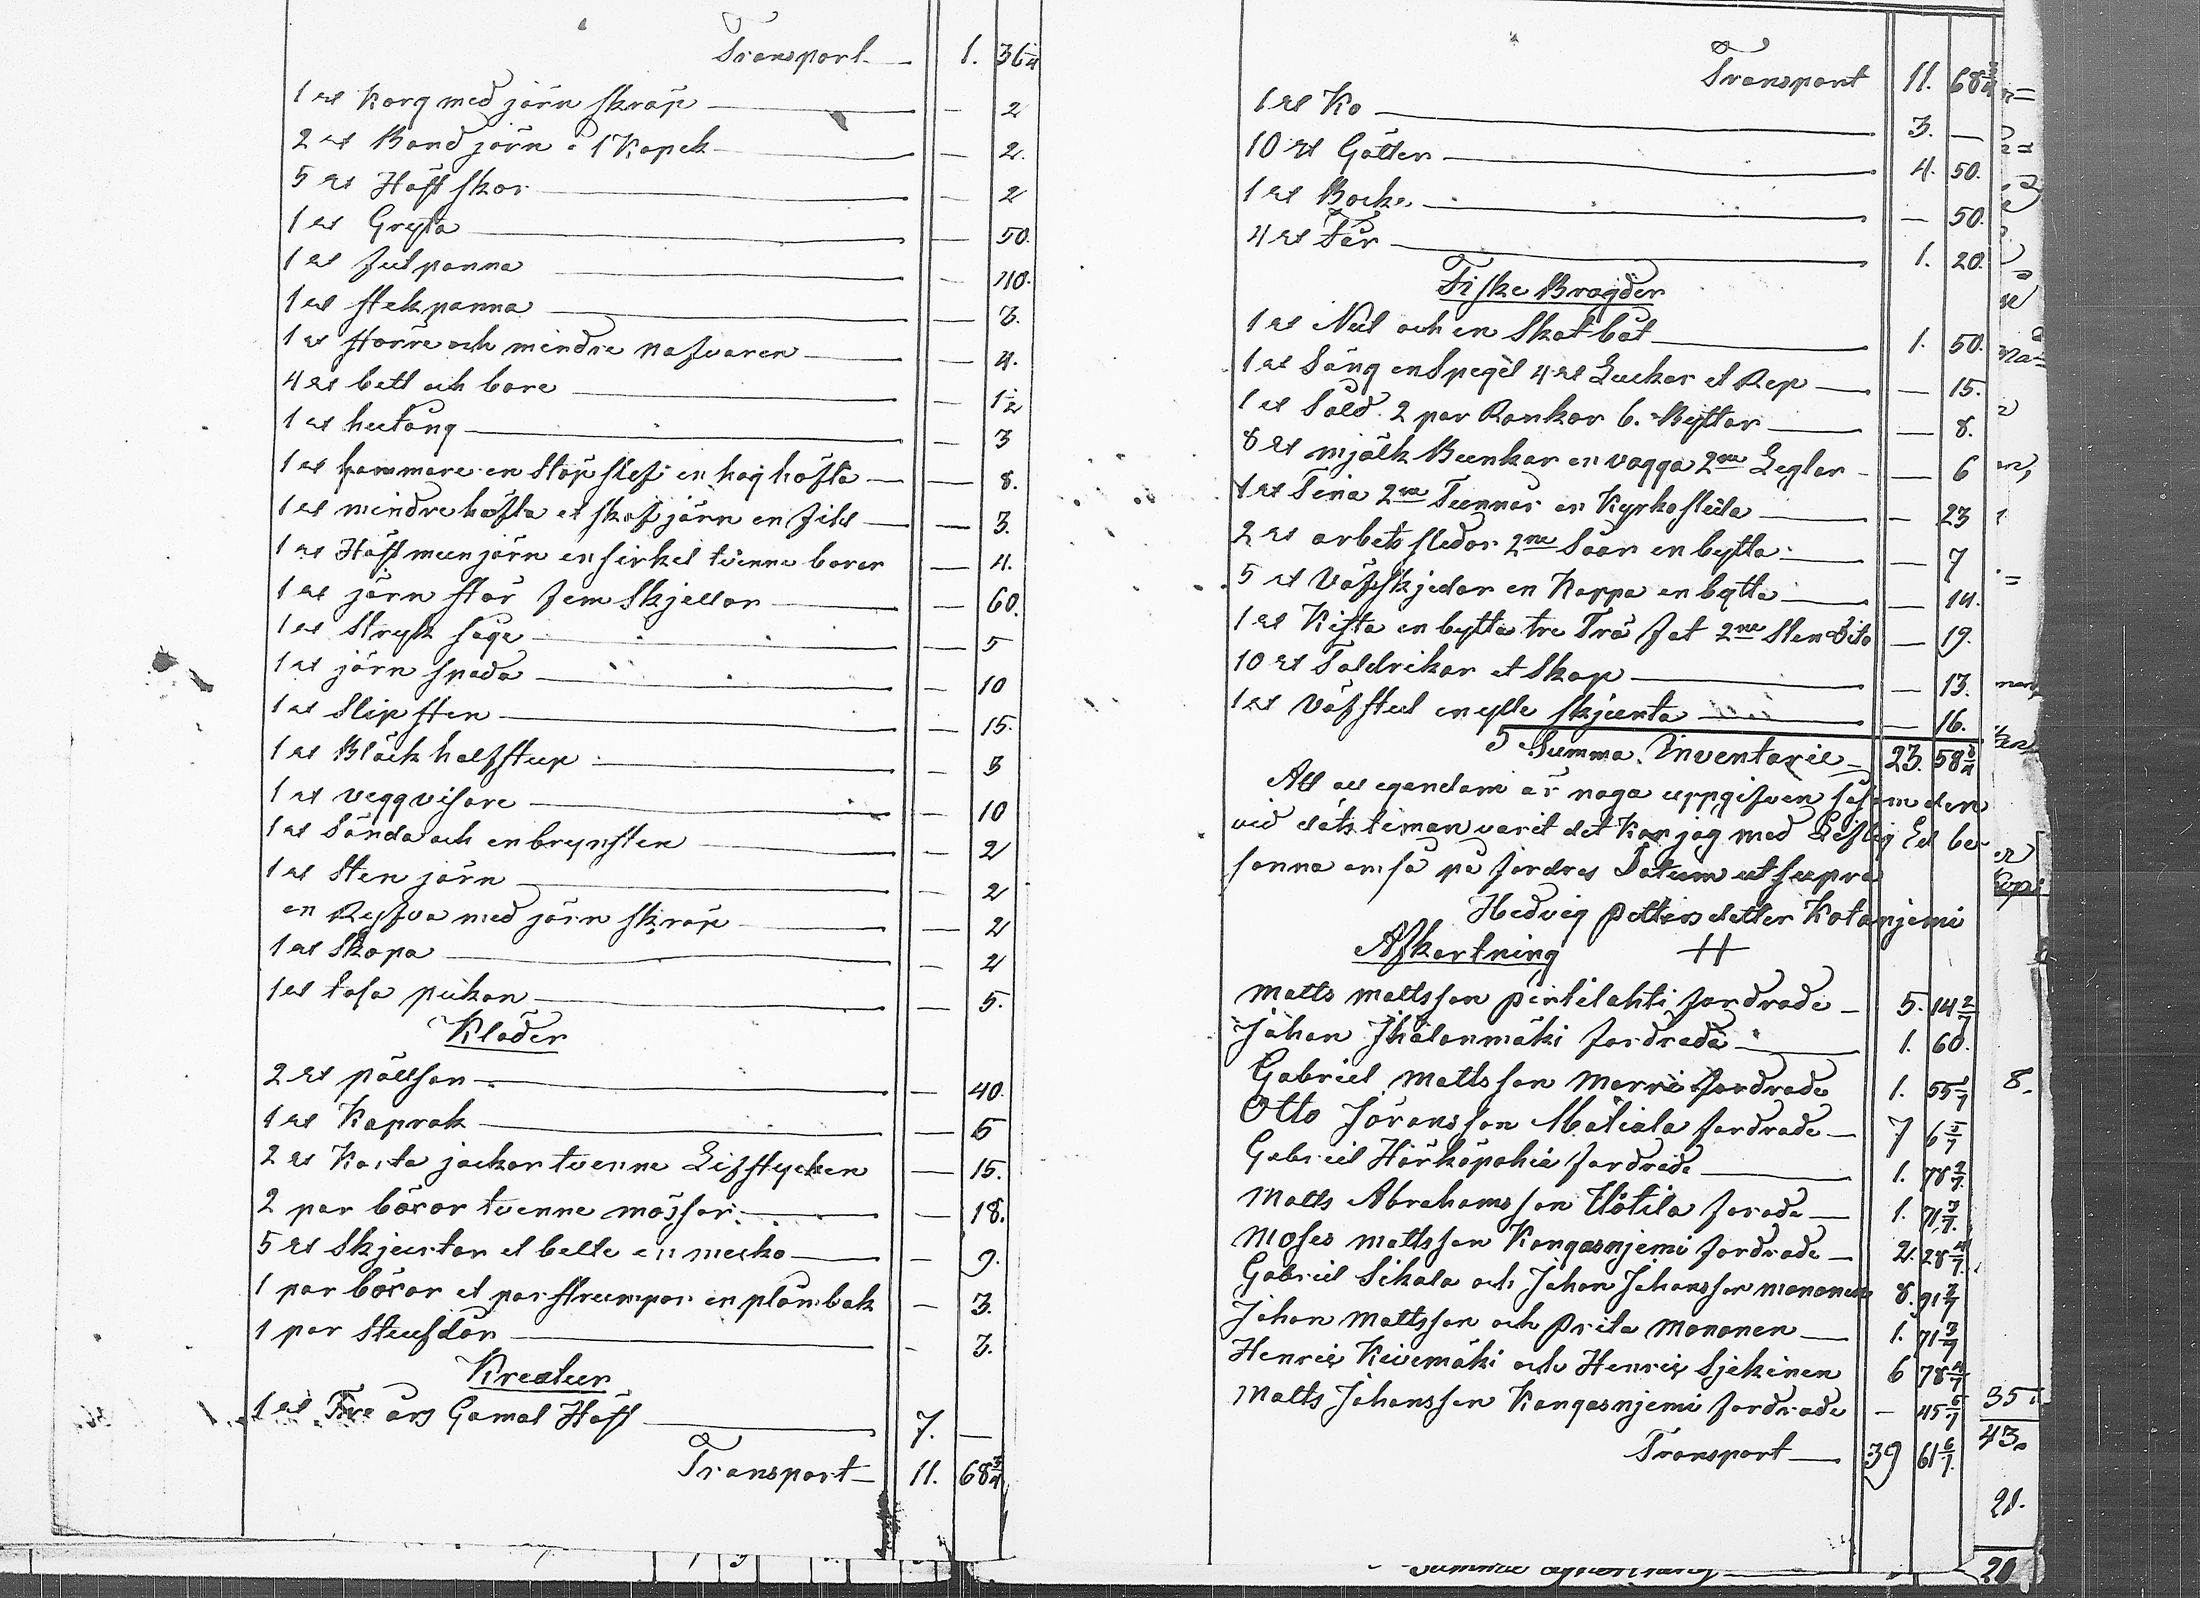 Transport — 1. 36 1/4
1 st Korg med järn skräp — — 2
2 st Band järn á 1 Kopek — — 2.
5 st Häst skor — — 2
1 st Gryta — — 50.
1 st jutpanna — — 40.
1 st stekpanna — — 3.
1 st större och mindre nafvaren — — 4.
4 st bett och bore — — 1 1/2
1 st huftång — — 3
1 st hammare en stöp slef en höghöfta — — 8.
1 st mindre höfta et skafjärn en fihl — — 3.
1 st Häst munjärn en sirkel tvenne borer — 4.
1 st järn stör fem Skjellor — — 60.
1 st Stryk såge — — 5
1 st järn spada — — 10
1 st Slipsten — — 15.
1 st Bläck halfstup — — 3
1 st veggvisare — — 10
1 st Sånda och en brynsten — — 2
1 st Sten järn — — 2
en Ryfva med järn skräp — — 2
1 st Skopa — — 2
1 st tasa pukan — — 5.
Kläder
2 st pällsar — — 40.
1 st Kaprak — — 5
2 st Korta jackor tvenne Lifstycken — 15.
2 par böxor tvenne mössor. — — 18.
5 st Skjurtor et bälte en mucko — — 9.
1 par böxor et par strumpor en plånbok — 3.
1 par Stufslör — - 3.
Kreatur
1 st Tre års Gamal Häst — 7. —
Transport — 11. 68 3/4
Transport 11. 68 3/4
1 st Ko — 3. —
10 st Götter — 4. 50.
1 st Bock. — — 50.
4 st Får — 1. 20.
Fiske Bragder
1 st Nut och en Skatbåt — 1. 50.
1 st Säng en Spegel 4 st Luckor et Rep — — 15.
1 st Såld. 2 par Rankor 6. Byttor — — 8.
8 st mjölk Bunkar en vagga 2ne Leglar — — 6
1 st Tina 2ne Tunnor en Kyrkosläda — — 23
2 st arbets slädor 2ne Såar en bytta — — 7
5 st Väfskjedar en Kappa en bytta — — 14.
1 st Kista en bytta tre Trä fat 2ne Sten dito — 19.
10 st Taldrikar et Skap — — 13.
1 st Väfstul en ylle skjurta — — 16.
Summa. Inventarie — 23. 58 3/4
All att egendom är noga uppgifven såsom den
vid dötstiman varit det Kan jag med Liflig Ed be-
sanna om så på fordras Datum utsupra
Hedvig Pettersdotter Kotamjemi
Afkortning #
Matts Mattsson Pertilahti fordrade — 5. 14 2/7
Johan Ihalanmäki fordrade — 1. 60.
Gabriel Mattsson Marri fordrade 1. 55 1/7
Otto Göransson Matiala fordrade — 7 6 5/7
Gabriel Härköpohia fordrade — 1. 78 2/7
Matts Abrahamsson Uotila forade — 1. 71 3/7.
Moses Mattsson Kangasnjemi fordrade — 2. 28 4/7.
Gabriel Sikala och Johan Johansson Mononen 8. 91 2/7
Johan Mattsson och Prita Mononen — 1. 71 3/7
Henrik Kivimäki och Henrik Sjekinen 6 78 4/7
Matts Johansson Kangasnjemi fordrade — 45 5/7
Transport — 39 61 6/7
8.
43.
21.
20